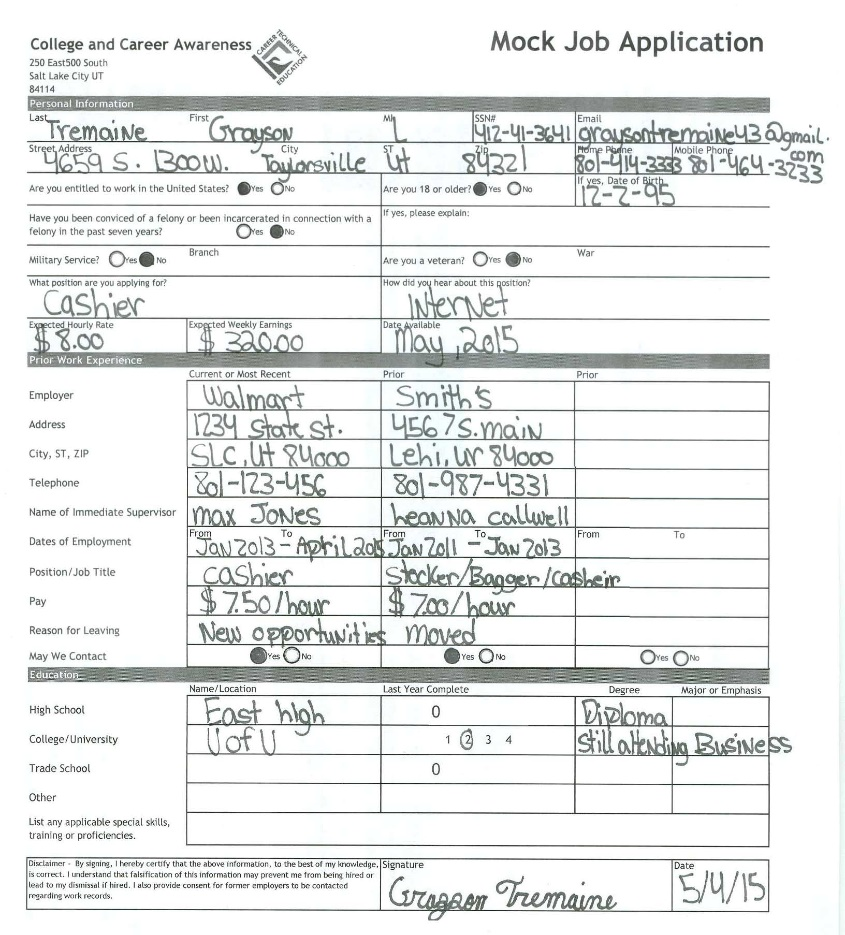 College and Career Awareness
CAREER TECHNICAL EDUCATION
Mock Job Application
250 East500 South
Salt Lake City UT
84114
Personal Information
Last First MI SSN# Email
Tremaine Grayson L 412-41-3641 graysontremaine43@gmail.com
Street Address City ST Zip Home Phone Mobile Phone
4659 S. 1300 W. Taylorsville Ut 84321 801-414-3333 801-464-3233
Are you entitled to work in the United States? Yes No Are you 18 or older? Yes No If yes, Date of Birth
12-2-95
Have you been conviced of a felony or been incarcerated in connection with a
felony in the past seven years? Yes No
If yes, please explain:
Military Service? Yes No Branch Are you a veteran? Yes No War
What position are you applying for? How did you hear about this position?
Cashier Internet
Expected Hourly Rate Expected Weekly Earnings Date Available
$8.00 $ 320.00 May, 2015
Prior Work Experience
Current or Most Recent Prior Prior
Employer Walmart Smith's
Address 1234 State St. 4567 S. Main
City, ST, ZIP SLC, Ut 84000 Lehi, UT 84000
Telephone 801-123-456 801-987-4331
Name of Immediate Supervisor Max Jones Leanna Callwell
From To From To From To
Dates of Employment Jan 2013 - April 2015 Jan 2011 - Jan 2013
Position/Job Title Cashier Stocker/Bagger/casheir
Pay $ 7.50/hour $ 7.00/hour
Reason for Leaving New opportunities moved
May We Contact Yes No Yes No Yes No
Education
Name/Location Last Year Complete Degree Major or Emphasis
High School East high 0 Diploma
College/University U of U 1 2 3 4 Still attending Business
Trade School 0
Other
List any applicable special skills,
training or proficiencies.
Disclaimer - By signing, I hereby certify that the above information, to the best of my knowledge,
is correct. I understand that falsification of this information may prevent me from being hired or
lead to my dismissal if hired. I also provide consent for former employers to be contacted
regarding work records.
Signature Date
Grayson Tremaine 5/4/15